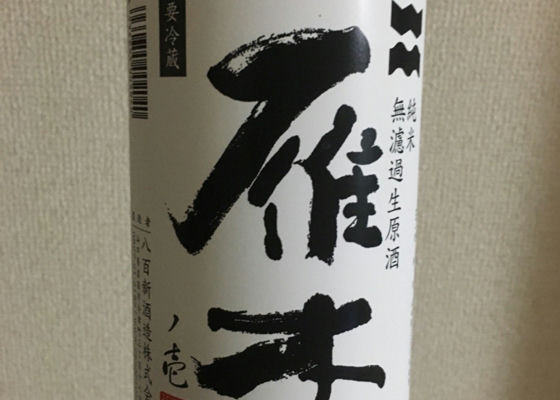 純米
無濾過生原酒
雁木
ノ壱
要冷蔵
八百新酒造株式会